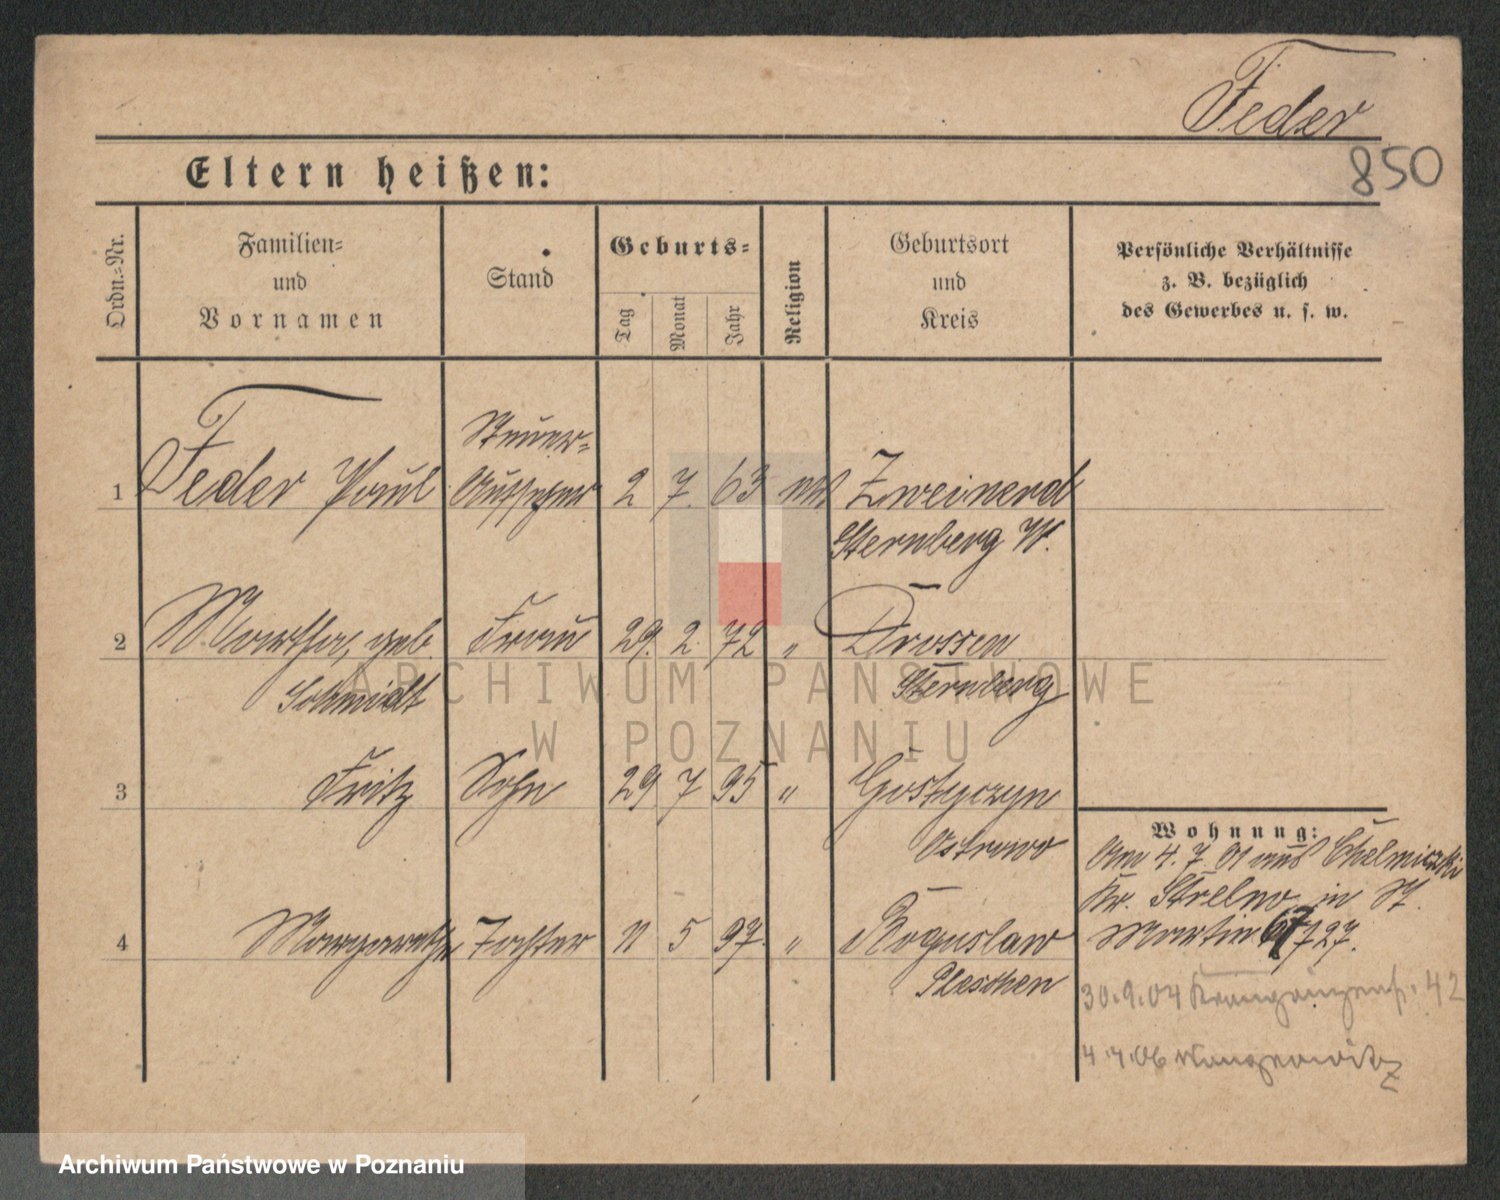 Feder
850
Eltern heißen:
Ordn.=Nr.
Familien=
und
Vornamen
Stand
Geburts=
Tag
Monat
Jahr
Religion
Geburtsort
und
Kreis
Persönliche Verhältnisse
z. B. bezüglich
des Gewerbes u. s. w.
1 Feder Paul Steuer=
Aufseher 2 7. 63 Zweinerd
Sternberg W.
2 Martha, geb. Frau 29. 2. 72 " Drossen
Schmidt Sternberg
3 Fritz Sohn 29 7 95 " Gostyczyn
Ostrowo
4 Margarethe Tochter 11 5 97. " Boguslaw
Pleschen
Wohnung:
Am 4. 7. 01 aus Chelmiczki
Kr. Strelno in St.
Martin 67 727.
30.9.04 42
4.4.06
ARCHIWUM PAŃSTWOWE
W POZNANIU
Archiwum Państwowe w Poznaniu